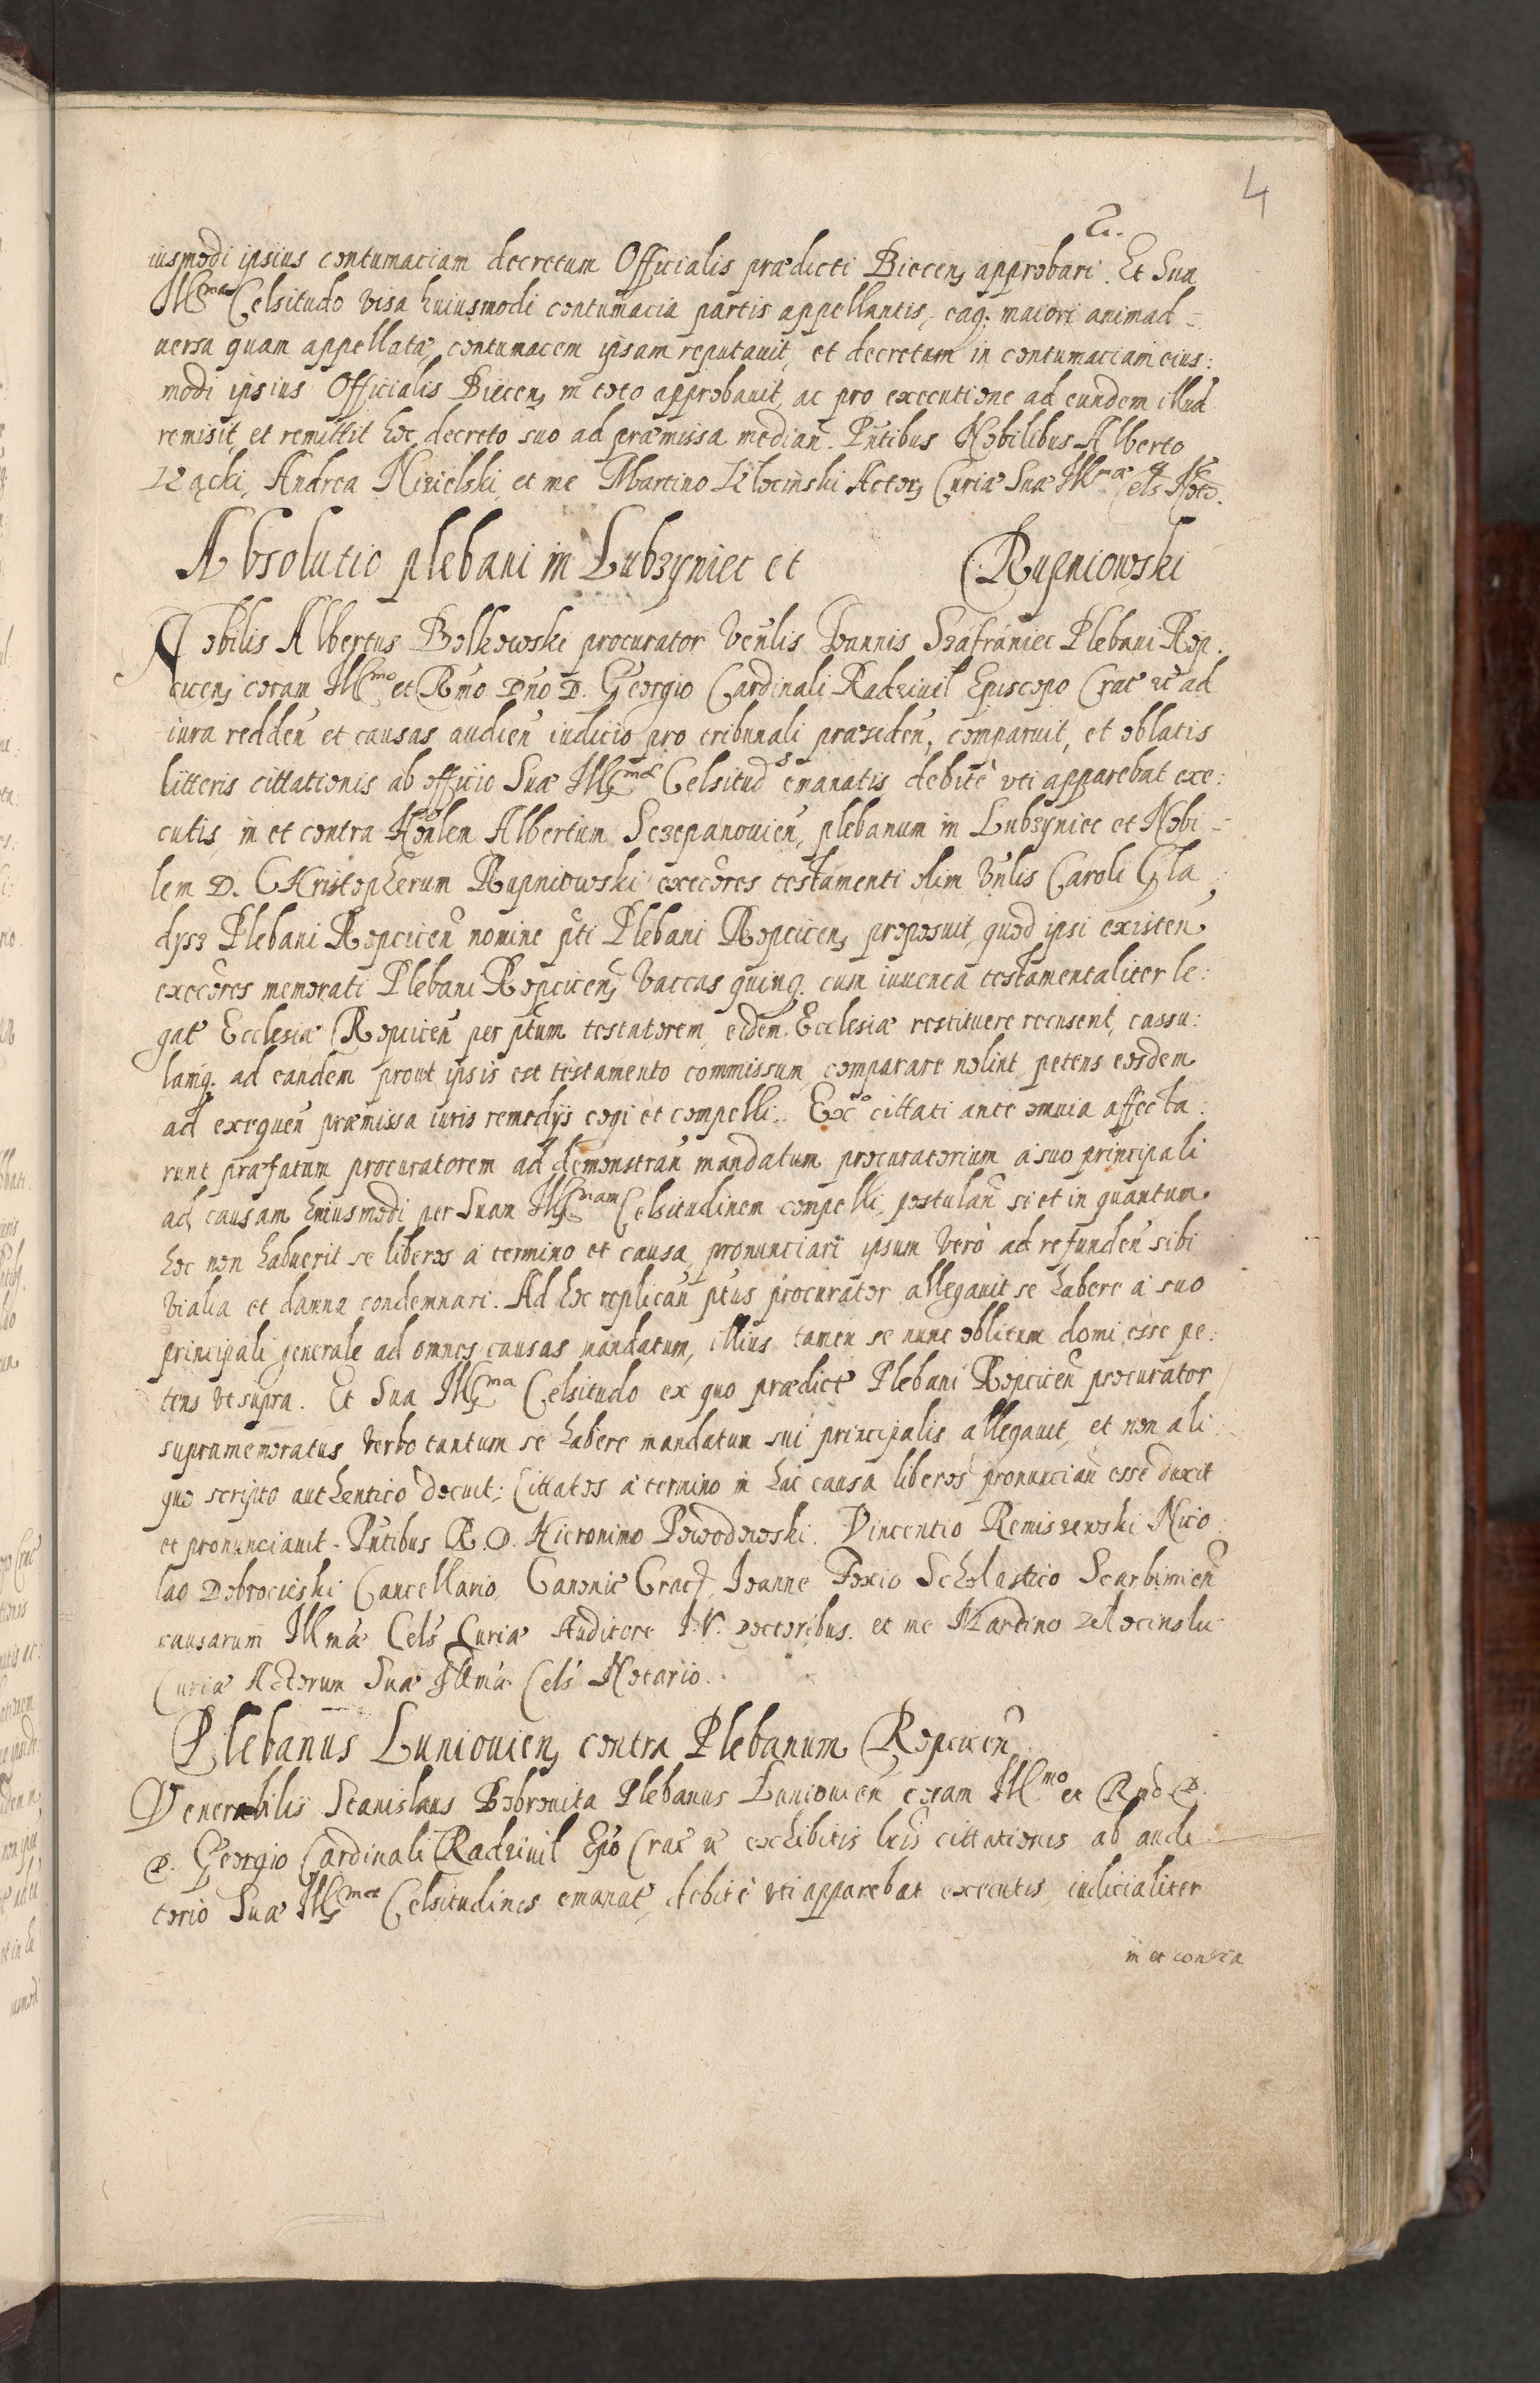 4
iusmodi ipsius contumaciam decretum Officialis prædicti Biecen, approbari. Et Sua
Illma Celsitudo visa huiusmodi contumacia partis appellantis, eaq; maiori animad=
uersa quam appellatæ, contumacem ipsam reputauit, et decretum in contumaciam eius:
modi ipsius Officialis Biecen, in toto approbauit, ac pro executione ad eundem illud
remisit, et remittit hoc decreto suo ad præmissa median. Pntibus Nobilibus Alberto
Andrea et me Martino Actor, Curiæ Suæ Illmæ Cels Noto.
Absolutio plebani in Lubzyniec et Rupniowski
Nobilis Albertus Bolkowski procurator Venlis Joannis Szafraniec Plebani Rop.
cicen, coram Illmo et Rmo Dno D. Georgio Cardinali Radziuil Episcopo Crac ad
iura redden et causas audien iudicio pro tribunali præsiden, comparuit, et oblatis
litteris cittationis ab officio Suæ Illmæ Celsitud emanatis debitè vti apparebat exe:
cutis, in et contra Honlem Albertum Sczepanouien, plebanum in Lubzyniec et Nobi=
lem D. CHristopherum Rupniowski execeres testamenti olim Vnlis Caroli Gla
dysz Plebani Ropcicen nomine pti Plebani Ropcicen, proposuit, quod ipsi existen
execeres memorati Plebani Ropcicen, vaccas quinq. cum iuuenca testamentaliter le:
gat Ecclesiæ Ropcicen per ptum testatorem, eidem Ecclesiæ restituere recusent, cassu:
lamq. ad eandem prout ipsis est testamento commissum, comparare nolint, petens eosdem
ad exequen præmissa iuris remedijs cogi et compelli. Exo cittati ante omnia affecta:
runt præfatum procuratorem ad demonstran mandatum procuratorium à suo principali
ad causam huiusmodi per Suam Illmam Celsitudinem compelli, postulan si et in quantum
hoc non habuerit se liberos à termino et causa pronunciari ipsum verò ad refunden sibi
vialia et damna condemnari. Ad hoc replican ptus procurator allegauit se habere à suo
principali generale ad omnes causas mandatum, illius tamen se nunc oblitum domi esse pe:
tens vt supra. Et Sua Illma Celsitudo ex quo prædict Plebani Ropcicen procurator
supramemoratus verbo tantum se habere mandatum sui principalis allegauit, et non ali
quo scripto authentico docuit; Cittatos à termino in hac causa liberos pronuncian esse duxit
et pronunciauit. Pntibus R. D. Hieronimo Powodowski. Vincentio Nico
lao Dobrocieski Cancellario, Canonic Crac, Joanne Foxio Scholastico Scarbimien
causarum Illmæ Cels Curiæ Auditore I. V. doctoribus. et me Martino
Curiæ Actorum Suæ Illmæ Cels Notario.
Plebanus Luniouien, contra Plebanum Ropcicen
Venerabilis Stanislaus Bobrouita Plebanus Luniouien coram Illmo et Rmo D.
D. Georgio Cardinali Radziuil Epo Crac exhibitis lris cittationis ab audi
torio Suæ Illmæ Celsitudinis emanat, debitè vti apparebat executis, iudicialiter
in et contra